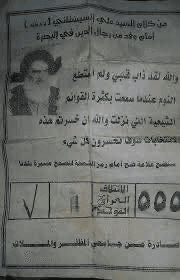 من كلام السيد علي السيستاني (دام ظله)
امام وفد من رجال الدين في البصرة
والله لقد ذاب قلبي ولم استطع
النوم عندما سمعت بكثرة القوائم
الشيعية التي نزلت والله ان خسرتم هذه
الانتخابات سوف تخسرون كل شيء
الائتلاف
العراقي
الموحد
٥٥٥
صادرة عن جامعي